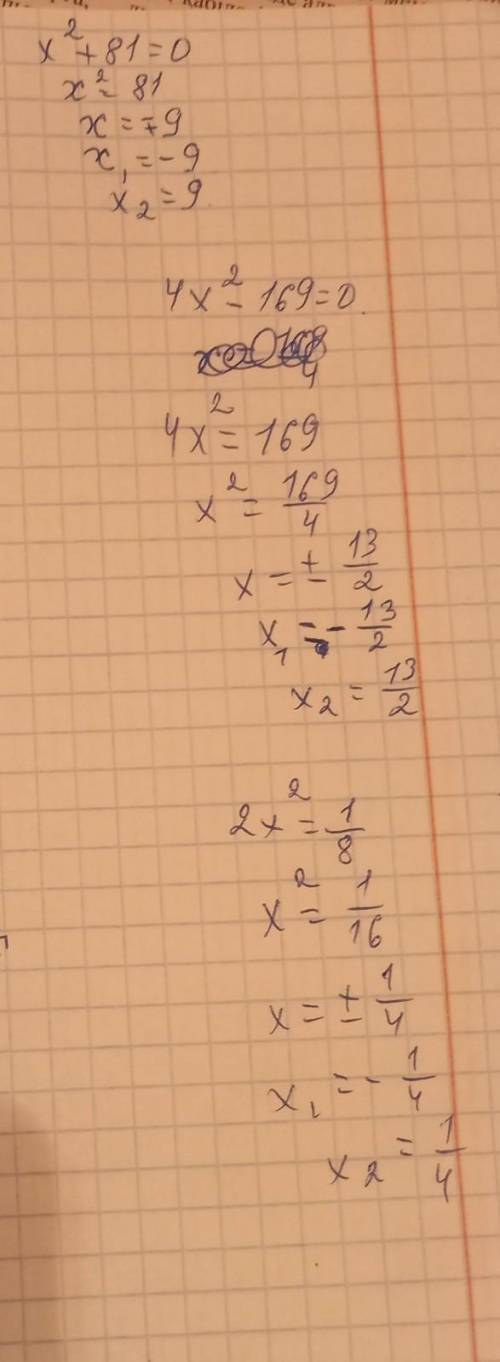 x² + 81 = 0
x² = 81
x = ∓9
x₁ = -9
x₂ = 9
4x² - 169 = 0
4
4x² = 169
x² = 169/4
x = ± 13/2
x₁ = - 13/2
x₂ = 13/2
2x² = 1/8
x² = 1/16
x = ± 1/4
x₁ = - 1/4
x₂ = 1/4